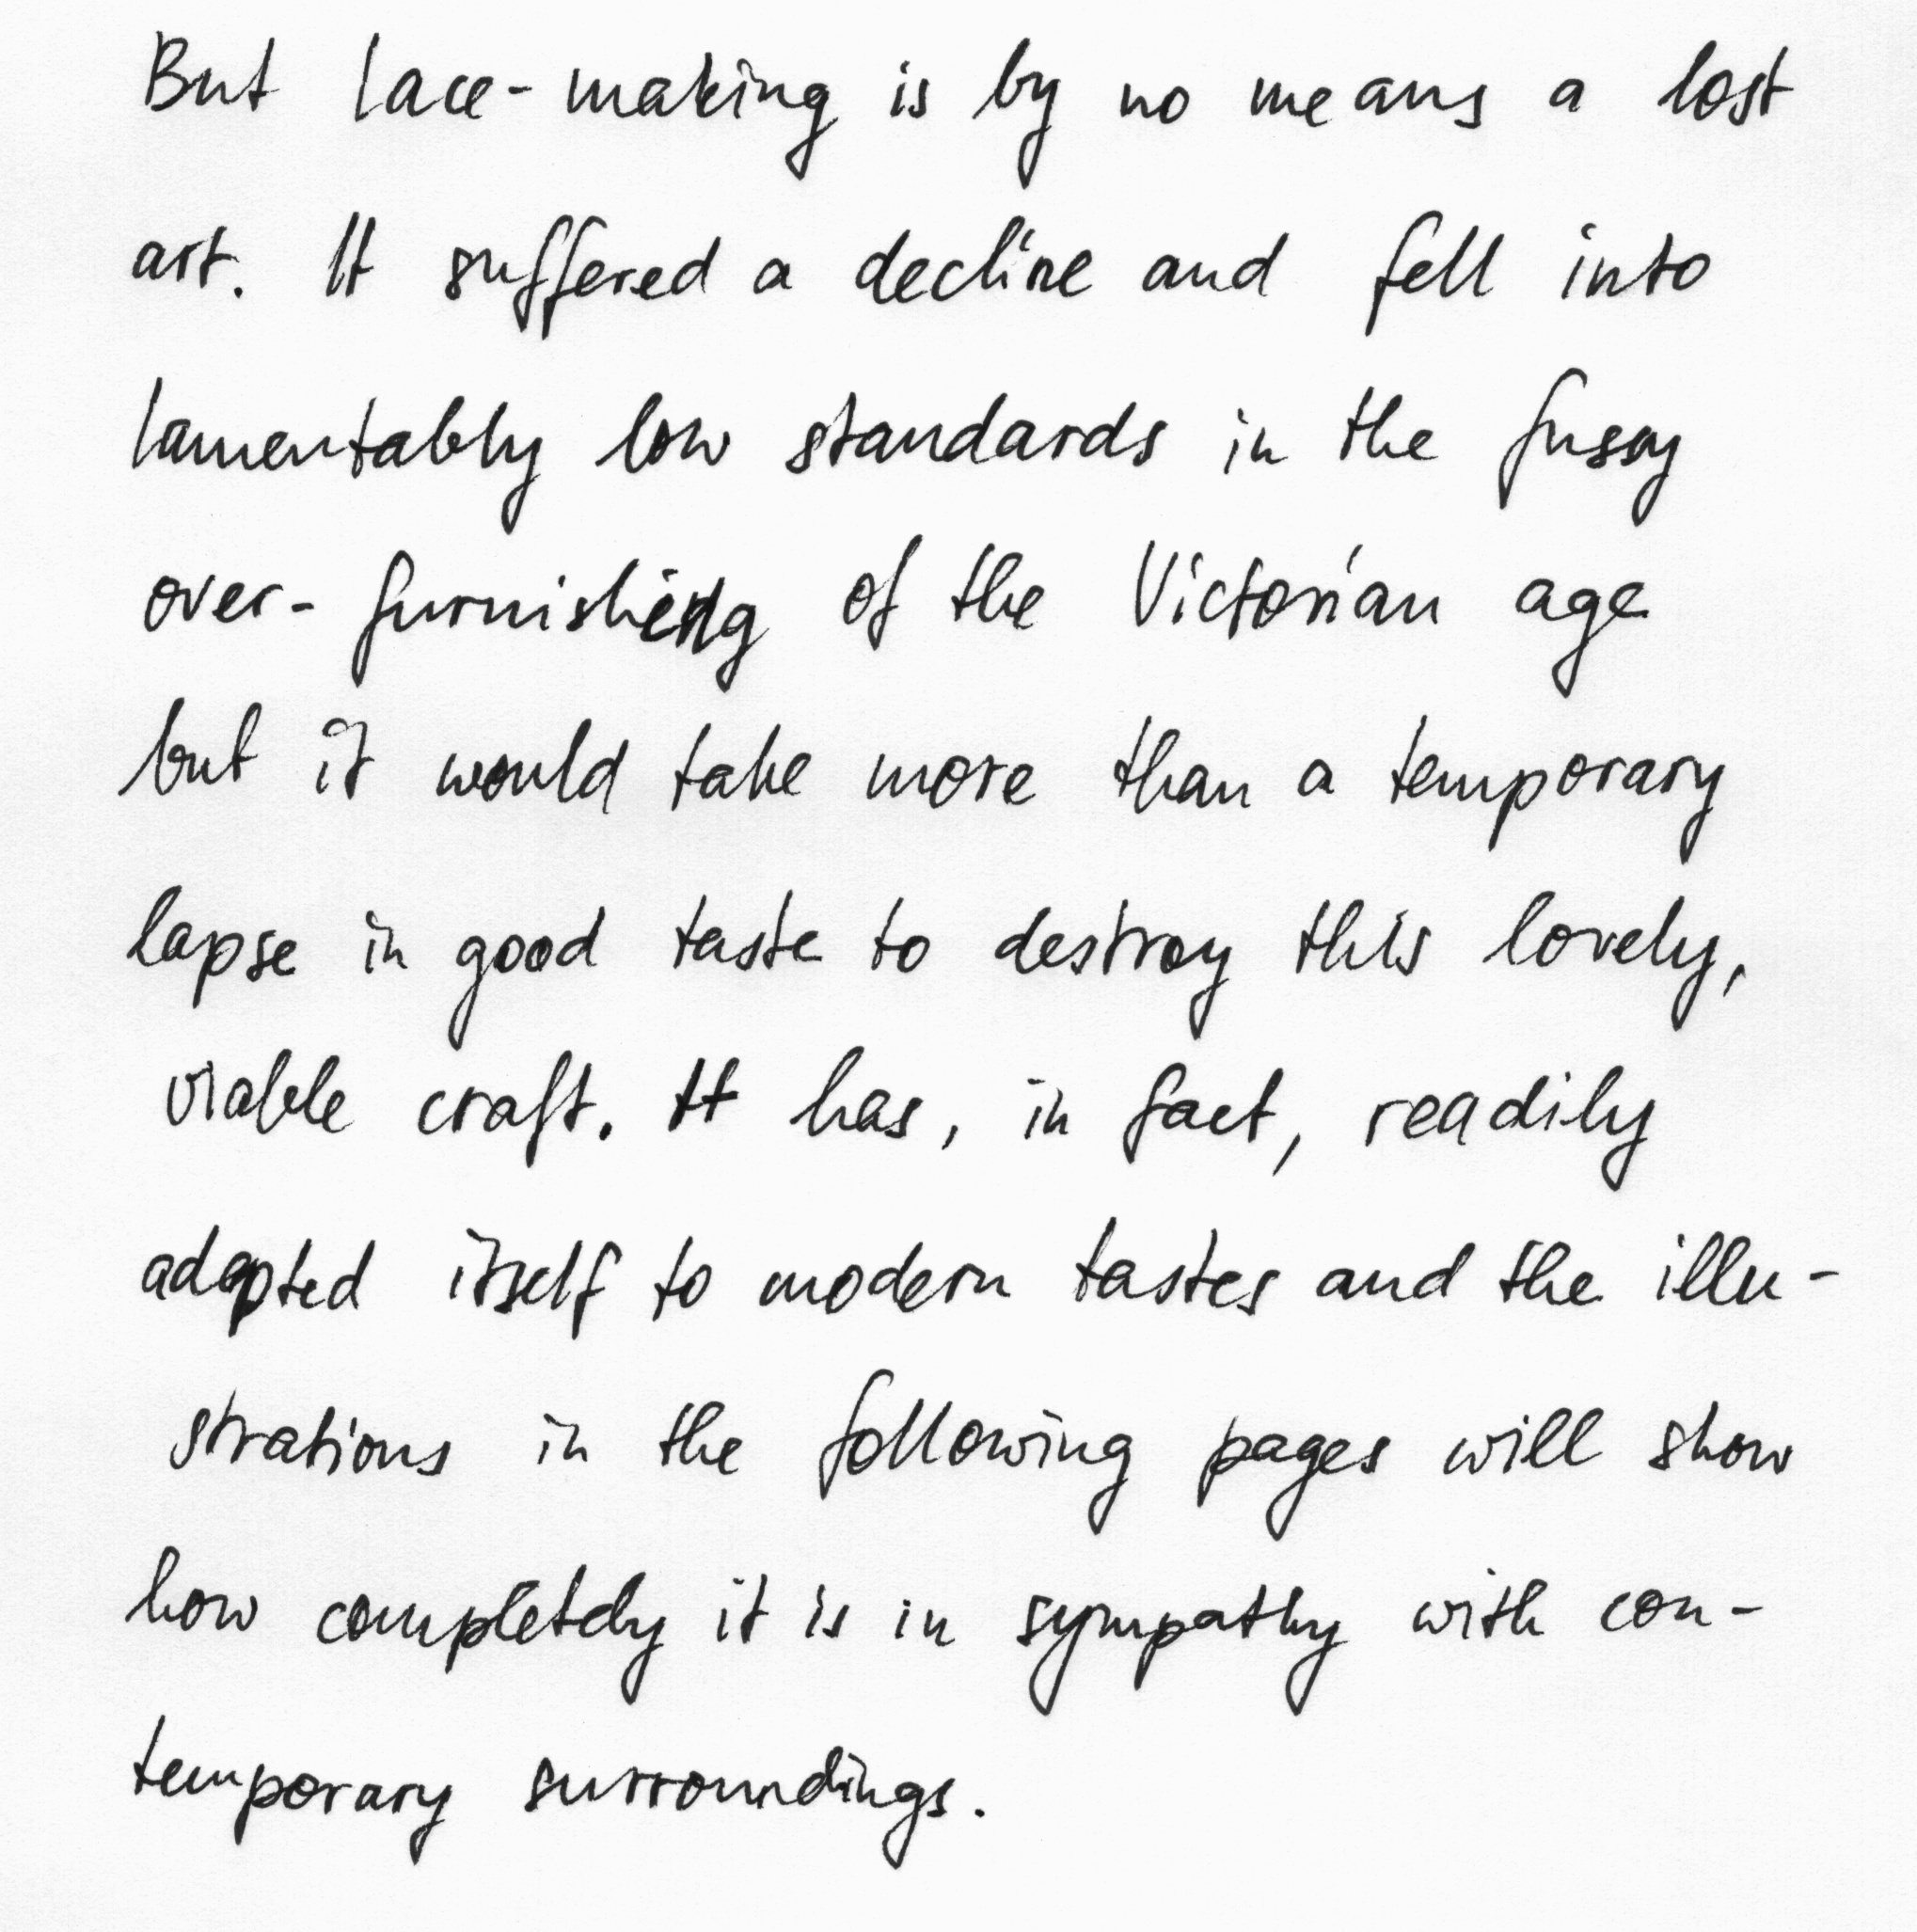 But lace-making is by no means a lost
art. It suffered a decline and fell into
lamentably low standards in the fussy
over-furnishing of the Victorian age
but it would take more than a temporary
lapse in good taste to destroy this lovely,
viable craft. It has, in fact, readily
adapted itself to modern tastes and the illu-
strations in the following pages will show
how completely it is in sympathy with con-
temporary surroundings.